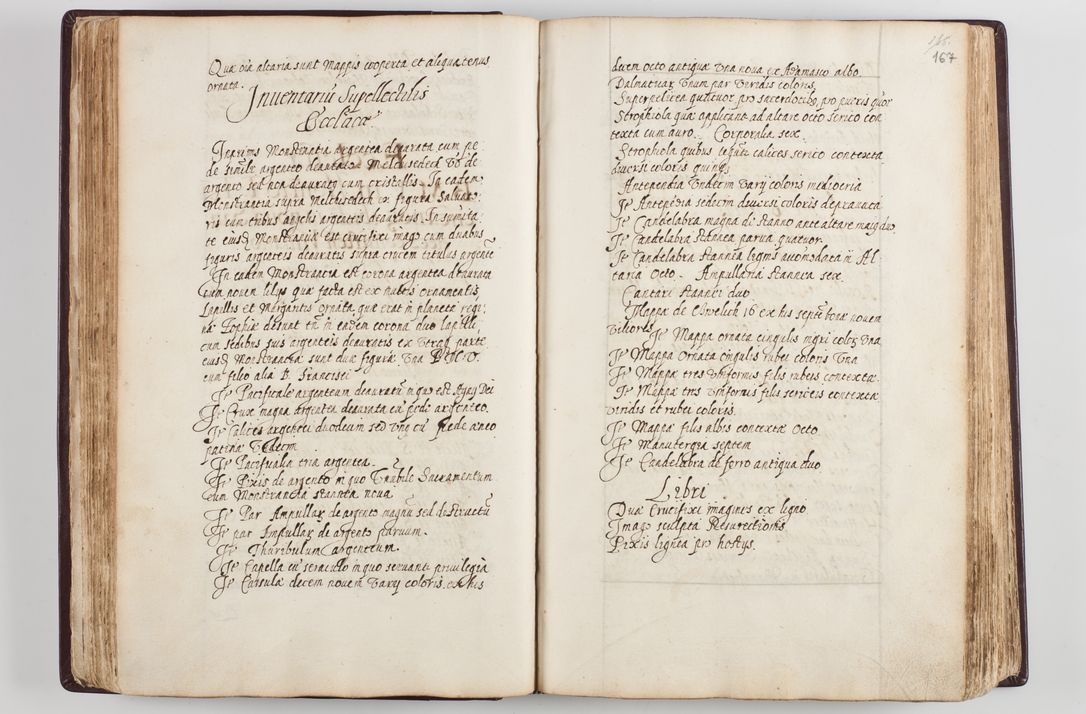 Quæ oĩa altaria sunt Mappis cooperta et aliquatenus
ornata.
Inventariũ Supellectilis
Eccl̃iacæ
Inprimis Monstrantia argentea deaurata cum pe-
de simili argenteo deaurato Melchisedech
argento sed non deaurato cum cristallis. In eadem
Monstrantia supra Melchisedech est figura Saluato-
ris cum tribus angelis argenteis deauratis. In sum̃ita
te eiusq Monstrantiæ est crucifixi imago cum duabus
figuris argenteis deauratis supra crucem titulus argenteꝰ
In eadem Monstrantia est corona argentea deaurata
cum novem lilys quæ facta est ex nubtis ornamentis
Lapillis et Margaritis ornata, quæ erat in planeta regi
næ Sophiæ desunt tñ in eadem corona duo lapilli
cum sedibus suis argenteis deauratis ex utraq parte
eiusq Monstrantiæ sunt duæ figuræ una B. M. V.
cum filio alia B. Francisci
Itẽ Pacificale argenteum deauratũ in quo est Agnꝰ Dei
Itẽ Crux magna argentea deaurata cũ pede argenteo.
Itẽ Calices argentei duodecim sed unꝰ cũ pede æneo
patinæ undecim
Itẽ Pacificalia tria argentea.
Itẽ Pixis de argento in quo Venerabile Sacramentum
cum Monstrantia stannea nova
Itẽ Par Ampullar de argento magnũ sed destructũ
Itẽ par Ampullar de argento parvum.
Itẽ Thuribulum argenteum.
Itẽ Capella cũ seraculo in quo servantr privilegia
Itẽ Casulæ decem novem vary coloris. ex his
167
decem octo antiquæ una nova ex Adamasco albo
Dalmaticar unum par viridis coloris
Superpelicea quatuor pro sacerdotibꝰ, pro pueris quor
Strophiola quæ applicant ad altare octo serico con
texta cum auro. Corporalia sex.
Strophiola quibus tegunt calices serico contexta
diversi coloris quinq
Antependia undecim vary coloris mediocria
Itẽ Antepẽdia sedecim diversi coloris depravata
Itẽ Candelabra magna di stanno ante altare maiꝰ duo
Itẽ Candelabra stannea parva quatuor.
Itẽ Candelabra stannea lignis accomodata in Al-
taria Octo. Ampullaria stannea sex
Cantari stannei duo
Mappæ de Cwelich 16 ex his septẽ bonæ novem
viliores Itẽ Mappa ornata cingulis nigri color una
Itẽ Mappa Ornata cingulis rubei coloris Una
Itẽ Mappæ tres uniformes filis rubeis contextæ
Itẽ Mappæ tres uniformes filis sericeis contextæ
viridis et rubei coloris.
Itẽ Mappæ filis albis contextæ Octo
Itẽ Manutergia septem
Itẽ Candelabra de ferro antiqua duo
Libri
Duæ Crucifixi imagines ex ligno
Imago sculpta Resurectionis
Pixis lignea pro hostys.